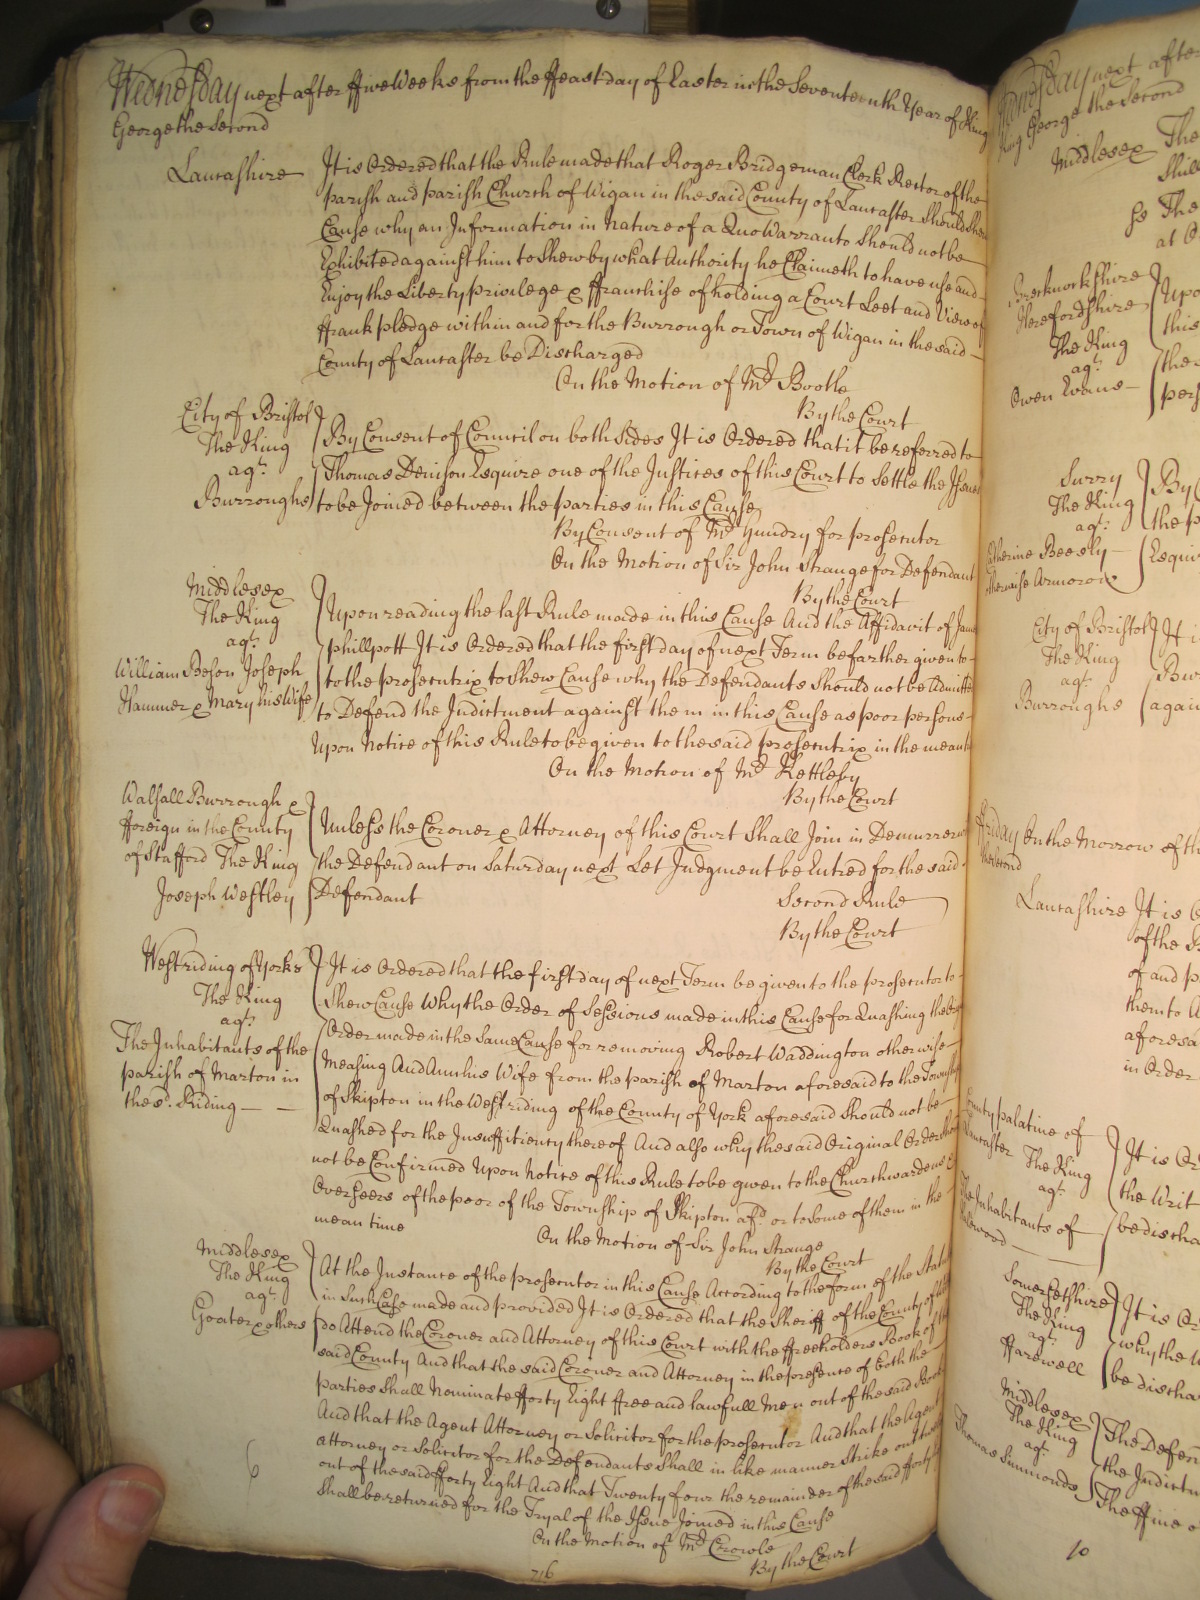 Wednesday next after ffive Weeks from the ffeast day of Easter in the Seventeenth Year of King
George the Second
Lancashire
It is Ordered that the Rule made that Roger Bridgeman Clerk Rector of the
parish and parish Church of Wigan in the said County of Lancaster Should Shew
Cause why an Information in Nature of a Quo Warranto Should not be
Exhibited against him to Shew by what Authority he Claimeth to have use and
Enjoy the Liberty privilege & ffranchise of holding a Court Leet and View of
ffrank pledge within and for the Burrough or Town of Wigan in the said
County of Lancaster be Discharged
On the Motion of Mr. Bootle
By the Court
City of Bristol
The King
agt.
Burroughs
By Consent of Council on both Sides It is Ordered that it be referred to
Thomas Denison Esquire one of the Justices of this Court to Settle the Issues
to be Joined between the parties in this Cause
By Consent of Mr. Gundry for prosecutor
On the Motion of Sir John Strange for Defendant
By the Court
Middlesex
The King
agt.
William Beson Joseph
Hammer & Mary his Wife
Upon reading the last Rule made in this Cause And the Affidavit of James
phillpott It is Ordered that the first day of next Term be farther given to
to the prosecutrix to Shew Cause why the Defendants Should not be Admitted
to Defend the Indictment against them in this Cause as poor persons
Upon Notice of this Rule to be given to the said prosecutrix in the mean
On the Motion of Mr. Kettleby
By the Court
Walsall Burrough &
fforeign in the County
of Stafford The King
Joseph Westley
Unless the Coroner & Attorney of this Court Shall Join in Demurrer with
the Defendant on Saturday next Let Judgment be Entred for the said
Defendant
Second Rule
By the Court
Westriding of Yorks
The King
agt.
The Inhabitants of the
parish of Marton in
the sd. Riding
It is Ordered that the first day of next Term be given to the prosecutor to
Shew Cause Why the Order of Sessions made in this Cause for Quashing the
Order made in the Same Cause for removing Robert Waddington otherwise
Measing And Ann his Wife from the parish of Marton aforesaid to the Township
of Skipton in the Westriding of the County of York aforesaid Should not be
Quashed for the Insufficiency thereof And also why the said Original Order Should
not be Confirmed Upon Notice of this Rule to be given to the Churchwardens &
Overseers of the poor of the Township of Skipton afsd. or to Some of them in the
mean time
On the Motion of Sir John Strange
By the Court
Middlesex
The King
agt.
Goater & others
At the Instance of the prosecutor in this Cause According to the form of the Statute
in Such Case made and provided It is Ordered that the Sheriff of the County of
do Attend the Coroner and Attorney of this Court with the ffreeholders Book of the
said County And that the said Coroner and Attorney in the presence of both the
parties Shall Nominate fforty Eight ffree and lawfull Men out of the said Book
And that the Agent Attorney or Solicitor for the prosecutor And that the Agent
attorney or Solicitor for the Defendants Shall in like manner Strike out
out of the said fforty Eight And that Twenty four the remainder of the said fforty
Shall be returned for the Tryal of the Issue Joined in this Cause
On the Motion of Mr. Crowle
By the Court
Wednesday next after
King George the Second
Middlesex The
The
at
Brecknockshire
Herefordshire
The King
agt.
Owen Evans
Upon
this
the
pers
Surry
The King
agt.
Catherine Beesly
otherwise Armorow
By
the p
Esqui
City of Bristol
The King
agt.
Burroughs
It i
Bur
again
ffriday On the Morrow of th
the Second
Lancashire It is
of the
of and p
them to A
aforesa
in Order
County palatine of
Lancaster The King
agt.
The Inhabitants of
It is Or
the Writ
be discha
Somersetshire
The King
agt.
ffarewell
It is Or
why the
be discha
Middlesex
The King
agt.
Thomas Simmonds
The Defen
the Indictm
The ffine o
10